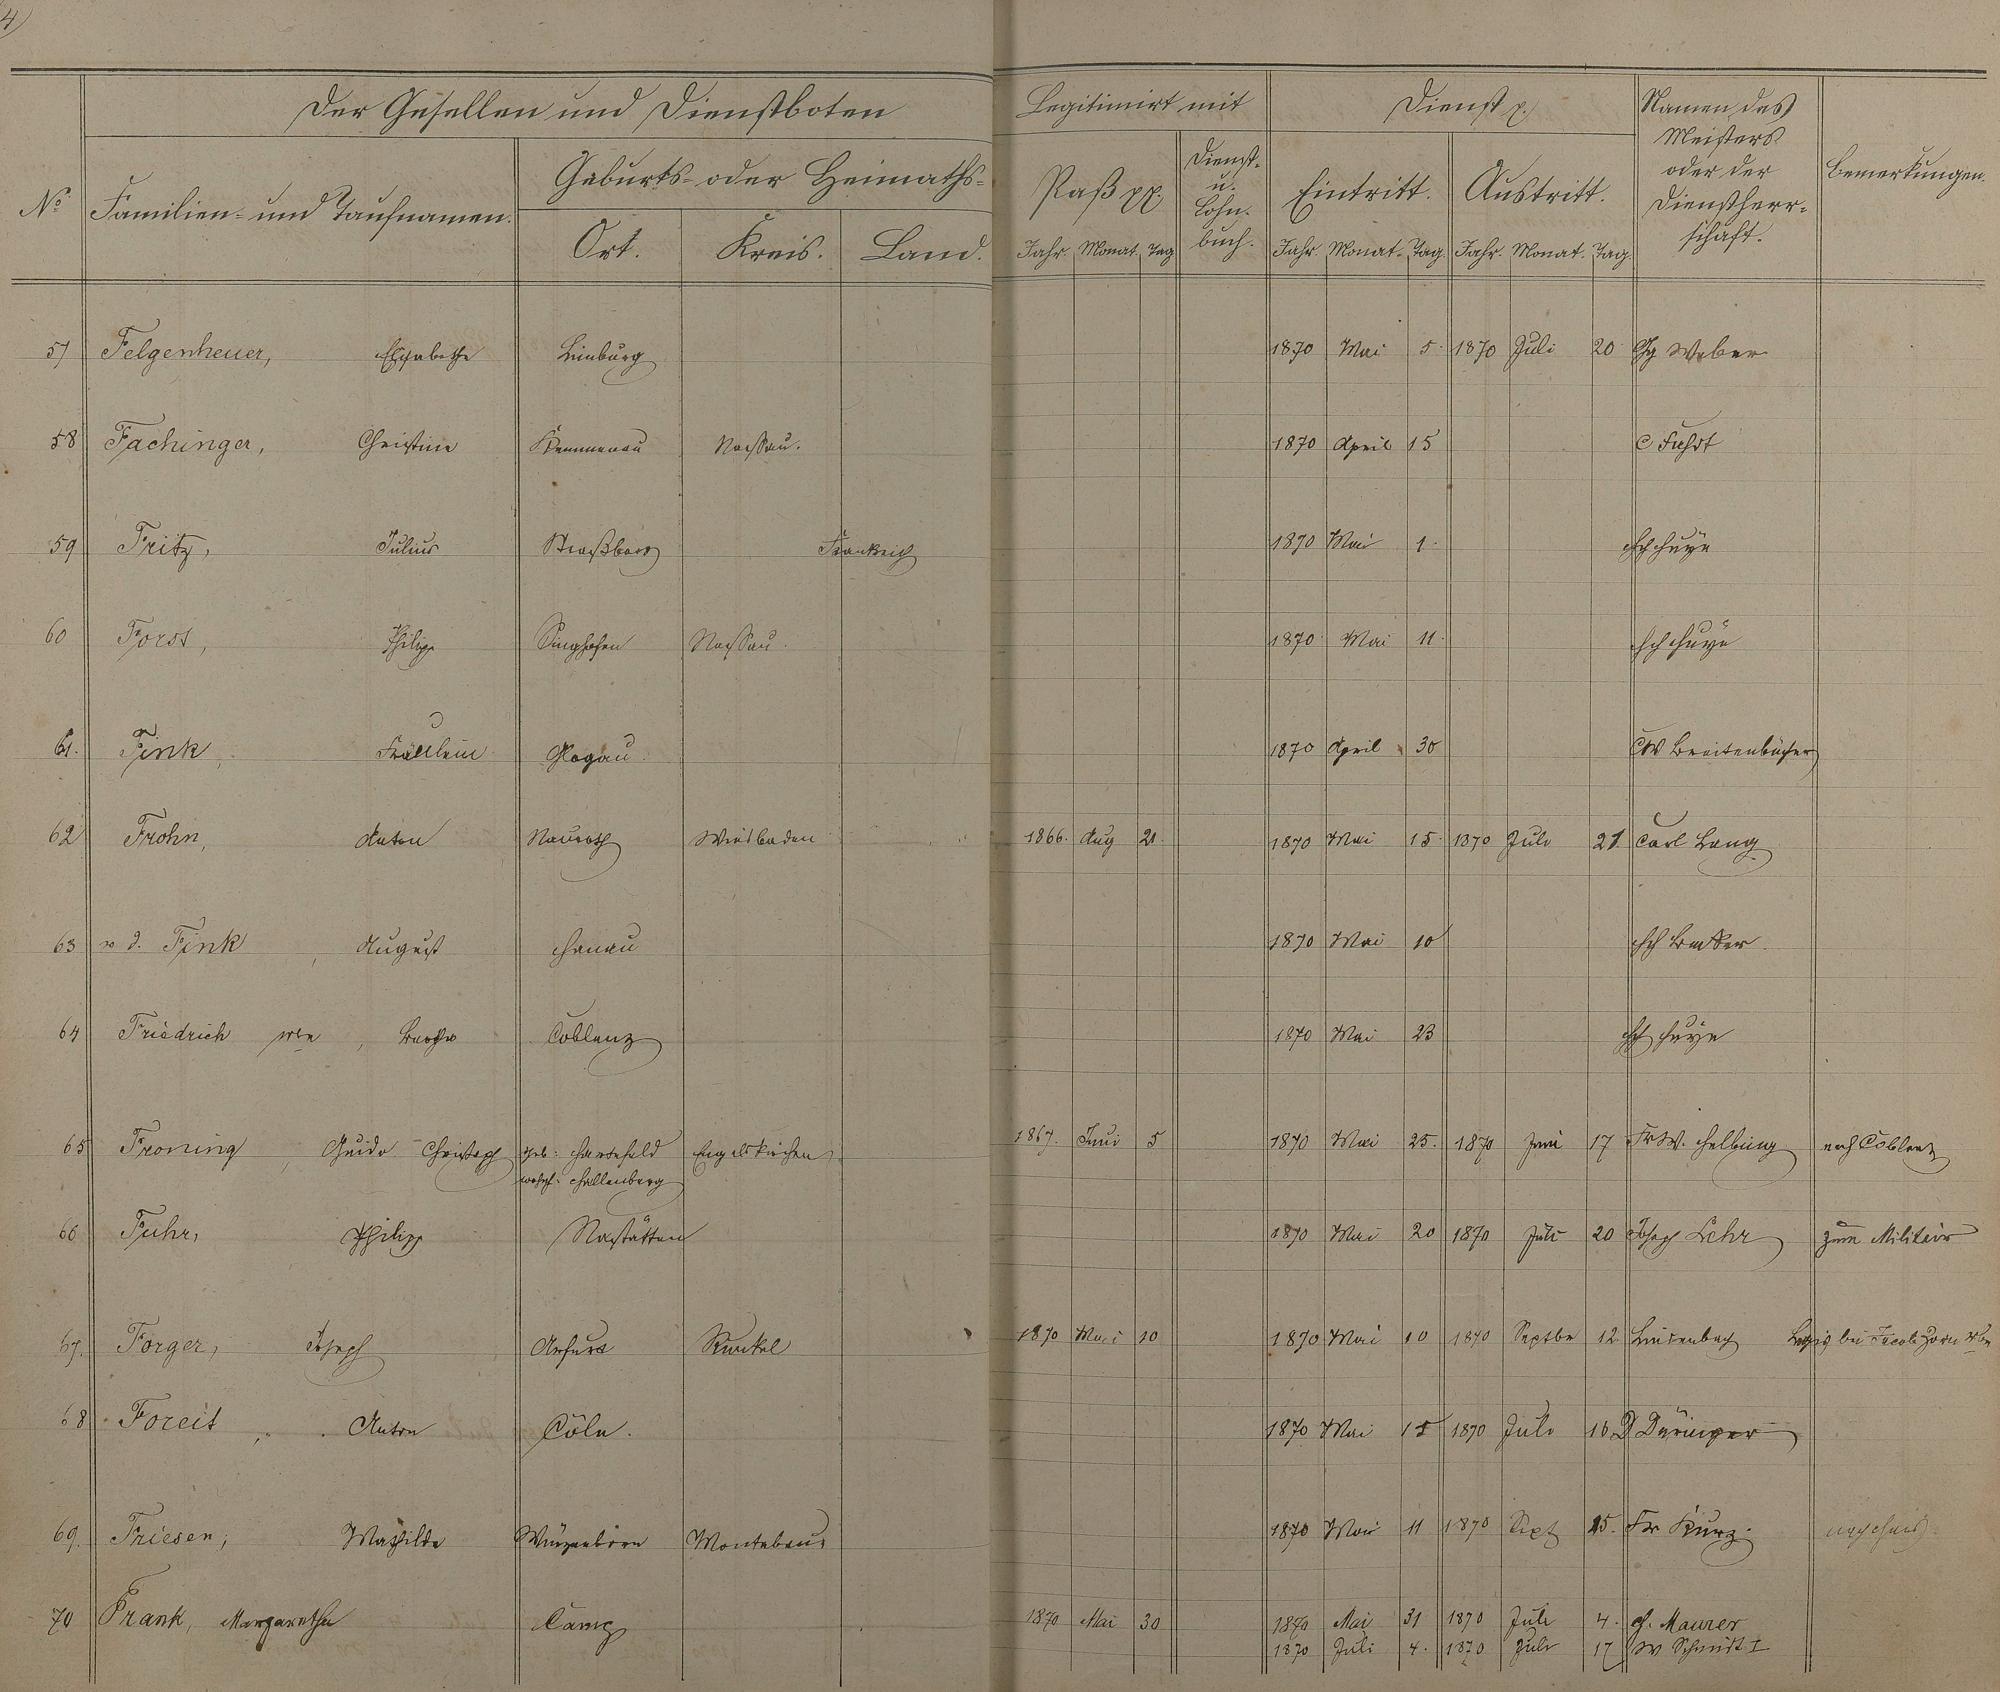 4)
Der Gesellen und Dienstboten
Legitimirt mit
Dienst p.
Namen des Meisters oder der Dienstherrschaft.
Bemerkungen.
No
Familien- und Taufnamen.
Geburts- oder Heimaths-
Ort. Kreis. Land.
Paß pp. Dienst- u. Lohn- buch.
Eintritt. Austritt.
Jahr. Monat. Tag Jahr. Monat. Tag. Jahr. Monat. Tag.
57 Felgenheuer, Elisabethe Limburg 1870 Mai 5. 1870 Juli 20 Gg Weber
58 Fachinger, Christine Kemmenau Nassau. 1870 April 15 C Fuhst
59 Fritz, Julius Straßburg Frankreich 1870 Mai 1.
60 Forst, Philipp Singhofen Nassau. 1870 Mai 11.
61. Fink, Fräulein Glogau 1870 April 30 CW Breitenbücher
62 Frohn, Anton Nauroth Wiesbaden 1866. Aug 21. 1870 Mai 15. 1870 Juli 21 Carl Lang
63 v d. Fink, August Hanau 1870 Mai 10
64 Friedrich wte, Bertha Coblenz 1870 Mai 23
65 Froning, Guido Christoph geb: Harsefeld Engelskirchen 1867. Juni 5 1870 Mai 25. 1870 Juni 17 Fr W. Helbing nach Coblenz
wohnh: Hallenberg
66 Fuhr, Philipp Nastätten 1870 Mai 20 1870 Juli 20 Joseph Lehr zum Militair
67. Forger, Joseph Arfurt Runkel 1870 Mai 10 1870 Mai 10 1870 Septbr 12. Lindenbach Logis bei Jacob Zorn Wte
68 Foreit, Anton Cöln. 1870 Mai 15 1870 Juli 16 D Düringer
69. Friesen, Mathilde Wirzenborn Montabaur 1870 Mai 11 1870 Sept 15. Fr Kurz. nach Haus
70 Frank, Margaretha Camp 1870 Mai 30 1870 Mai 31 1870 Juli 4. H. Maurer
1870 Juli 4. 1870 Juli 17 W Schmidt I